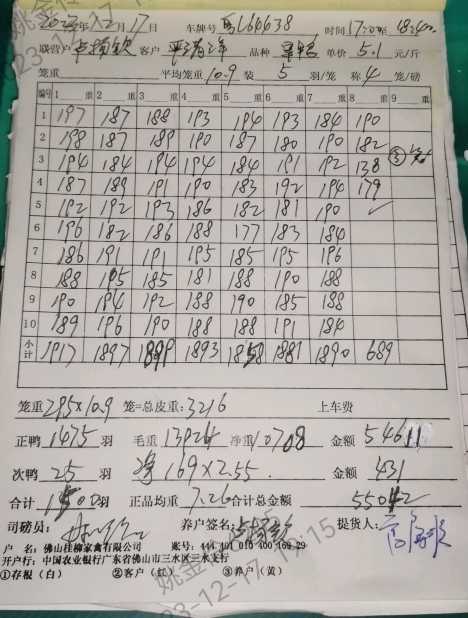 2023年12月17日 车牌号 粤L64638 时间17:20至18:40
联营户 客户 品种 单价 5.1 元/斤
笼重 平均笼重 10.9 装 5 羽/笼 称 4 笼/磅
编号 1 重 2 重 3 重 4 重 5 重 6 重 7 重 8 重 9 重
1 197 187 188 193 194 193 184 190
2 198 187 189 190 187 180 190 182
3 194 184 194 194 184 191 192 138 ③
4 187 189 191 190 183 192 194 179
5 192 192 193 186 182 181 190 ✓
6 196 182 186 188 177 183 184
7 186 191 191 195 185 195 196
8 188 195 185 181 188 190 188
9 190 194 192 188 190 185 188
10 189 196 190 188 188 191 184
小计 1917 1897 1899 1893 1858 1881 1890 689
笼重 295×10.9 笼=总皮重: 3216 上车费
正鸭 1475 羽 毛重 13924 净重 10708 金额 54611
次鸭 25 羽 净 169×2.55 金额 431
合计 1500 羽 正品均重 7.26 合计总金额 55042
司磅员: 养户签名: 提货人:
户 名: 佛山佳柳家禽有限公司 账号: 444 101 010 400 169 29
开户行: 中国农业银行广东省佛山市三水区三水支行
①存根（白） ②客户（红） ③养户（黄）